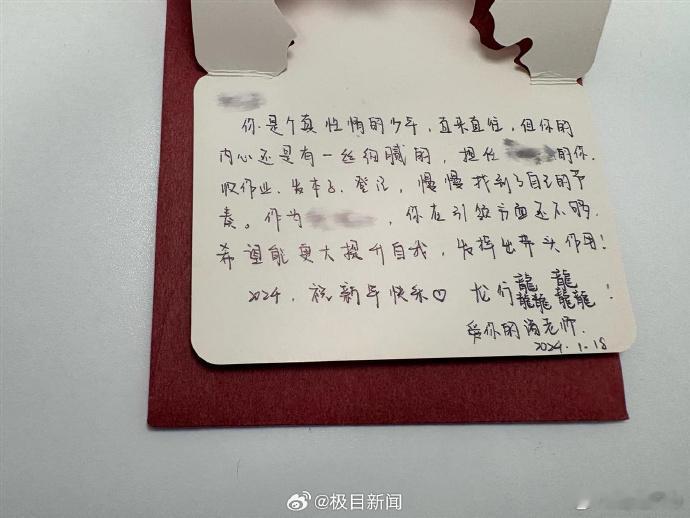 你是个真性情的少年,直来直往,但你的
内心还是有一丝细腻的,担任 的你,
收作业、发本子、登记,慢慢找到了自己的节
奏。作为 ,你在引领方面还不够,
希望能更大提升自我,发挥出带头作用!
2024,祝新年快乐♡ 龙行龘龘!
爱你的 老师.
2024.1.18
@极目新闻